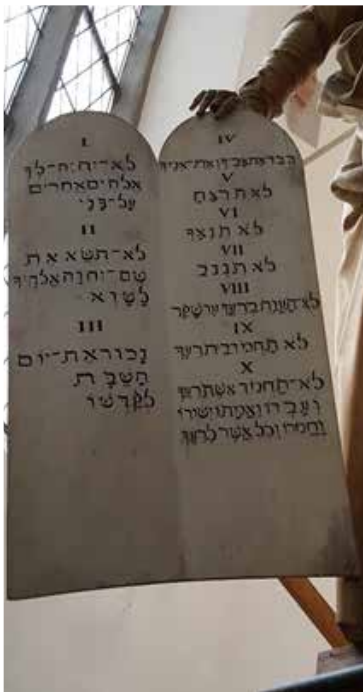 I
לא־יהיה־לך
אלהים אחרים
על־פני
II
לא־תשא את
שם־יהוה אלהיך
לשוא
III
זכור את־יום
השבת
לקדשו
IV
כבד את אביך ואת־אמך
V
לא תרצח
VI
לא תנאף
VII
לא תגנב
VIII
לא־תענה ברעך עד שקר
IX
לא תחמד בית רעך
X
לא־תחמד אשת רעך
ועבדו ואמתו ושורו
וחמרו וכל אשר לרעך